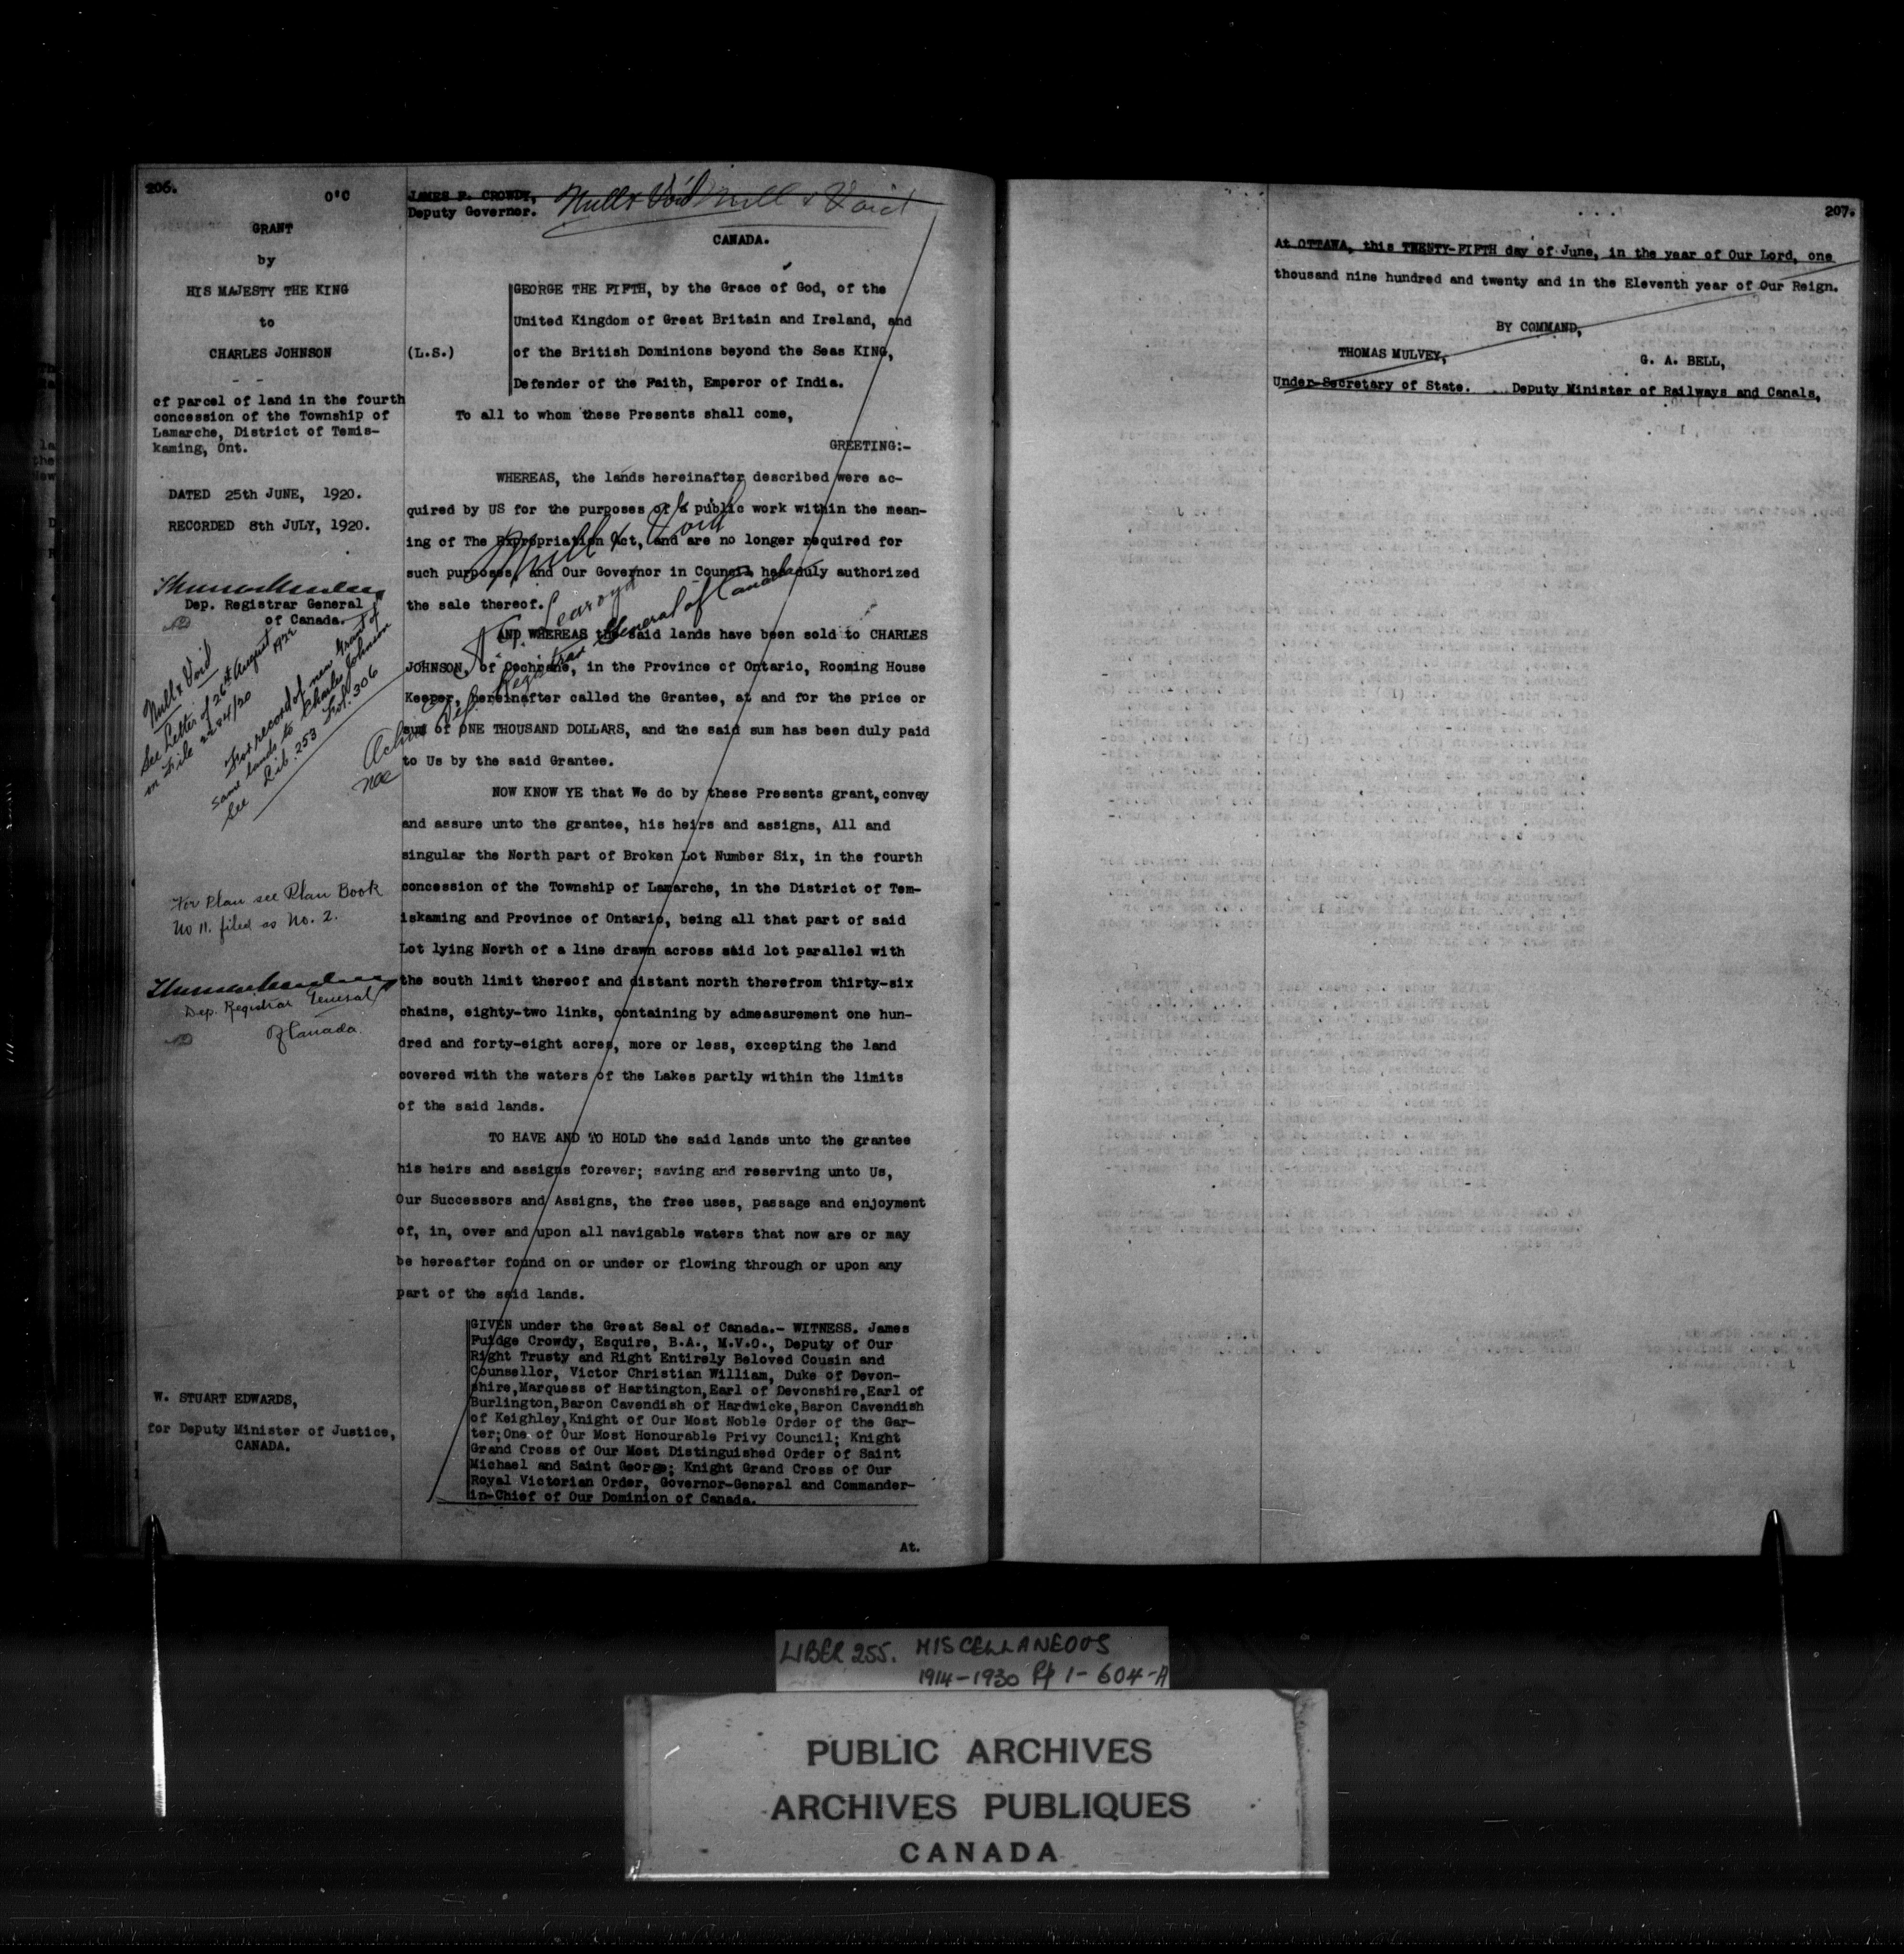 206.
O'C
GRANT
by
HIS MAJESTY THE KING
to
CHARLES JOHNSON
of parcel of land in the fourth
concession of the Township of
Lamarche, District of Temis-
kaming, Ont.
DATED 25th JUNE, 1920.
RECORDED 8th JULY, 1920.
Dep. Registrar General
of Canada.
Null & Void
See Letter of 26th August 1922
on File 2284/20
For record of new Grant of
same lands to Charles Johnson
See Lib. 253 Fol. 306
For Plan see Plan Book
No 11. filed as No. 2.
Dep. Registrar General
of Canada.
W. STUART EDWARDS,
for Deputy Minister of Justice,
CANADA.
JAMES F. CROWDY,
Deputy Governor.
Null & Void Null & Void
CANADA.
GEORGE THE FIFTH, by the Grace of God, of the
United Kingdom of Great Britain and Ireland, and
(L.S.) of the British Dominions beyond the Seas KING,
Defender of the Faith, Emperor of India.
To all to whom these Presents shall come,
GREETING:-
WHEREAS, the lands hereinafter described were ac-
quired by US for the purposes of a public work within the mean-
ing of The Expropriation Act, and are no longer required for
such purposes, and Our Governor in Council has duly authorized
the sale thereof.
Null & Void
Acting Dep. Registrar General of Canada
AND WHEREAS the said lands have been sold to CHARLES
JOHNSON, of Cochrane, in the Province of Ontario, Rooming House
Keeper, hereinafter called the Grantee, at and for the price or
sum of ONE THOUSAND DOLLARS, and the said sum has been duly paid
to Us by the said Grantee.
NOW KNOW YE that We do by these Presents grant, convey
and assure unto the grantee, his heirs and assigns, All and
singular the North part of Broken Lot Number Six, in the fourth
concession of the Township of Lamarche, in the District of Tem-
iskaming and Province of Ontario, being all that part of said
Lot lying North of a line drawn across said lot parallel with
the south limit thereof and distant north therefrom thirty-six
chains, eighty-two links, containing by admeasurement one hun-
dred and forty-eight acres, more or less, excepting the land
covered with the waters of the Lakes partly within the limits
of the said lands.
TO HAVE AND TO HOLD the said lands unto the grantee
his heirs and assigns forever; saving and reserving unto Us,
Our Successors and Assigns, the free uses, passage and enjoyment
of, in, over and upon all navigable waters that now are or may
be hereafter found on or under or flowing through or upon any
part of the said lands.
GIVEN under the Great Seal of Canada.- WITNESS. James
Fuidge Crowdy, Esquire, B.A., M.V.O., Deputy of Our
Right Trusty and Right Entirely Beloved Cousin and
Counsellor, Victor Christian William, Duke of Devon-
shire,Marquess of Hartington,Earl of Devonshire,Earl of
Burlington,Baron Cavendish of Hardwicke,Baron Cavendish
of Keighley,Knight of Our Most Noble Order of the Gar-
ter;One of Our Most Honourable Privy Council; Knight
Grand Cross of Our Most Distinguished Order of Saint
Michael and Saint George; Knight Grand Cross of Our
Royal Victorian Order, Governor-General and Commander-
in-Chief of Our Dominion of Canada.
At.
207.
At OTTAWA, this TWENTY-FIFTH day of June, in the year of Our Lord, one
thousand nine hundred and twenty and in the Eleventh year of Our Reign.
BY COMMAND,
THOMAS MULVEY, G. A. BELL,
Under-Secretary of State. Deputy Minister of Railways and Canals,
LIBER 255. MISCELLANEOUS
1914-1930 Pp 1-604-A
PUBLIC ARCHIVES
ARCHIVES PUBLIQUES
CANADA